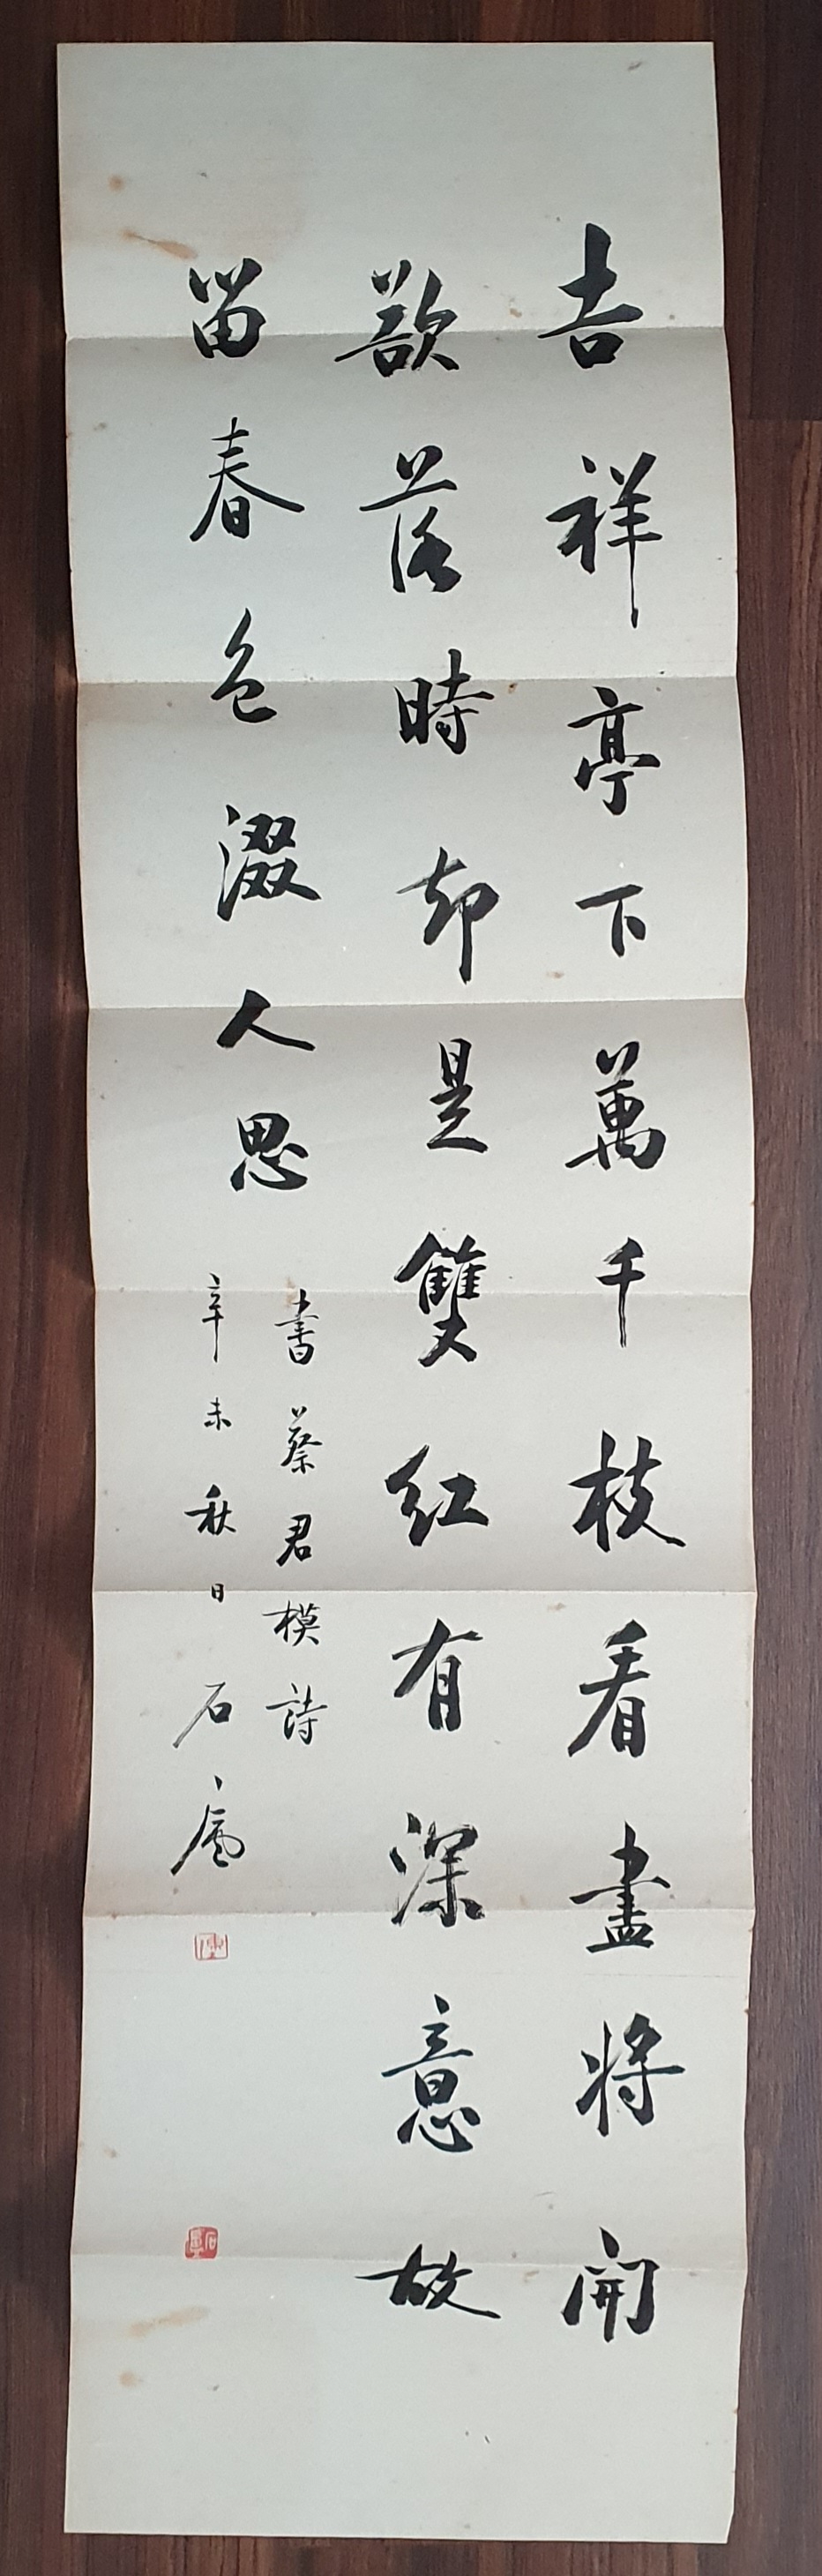 吉祥亭下萬千枝看盡將開
欲落時却是雙紅有深意故
留春色綴人思
書蔡君模詩
辛未秋日 石